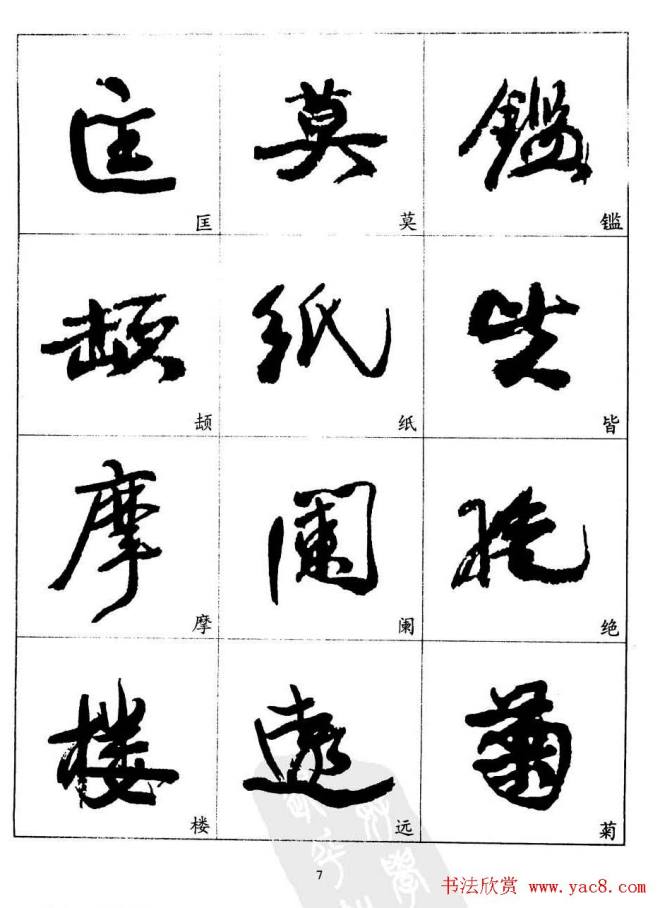 匡 莫 鑑
匡 莫 鑑
紙 皆
纸 皆
摩 闌 絶
摩 阑 绝
楼 遠 菊
楼 远 菊
7
书法欣赏 www.yac8.com